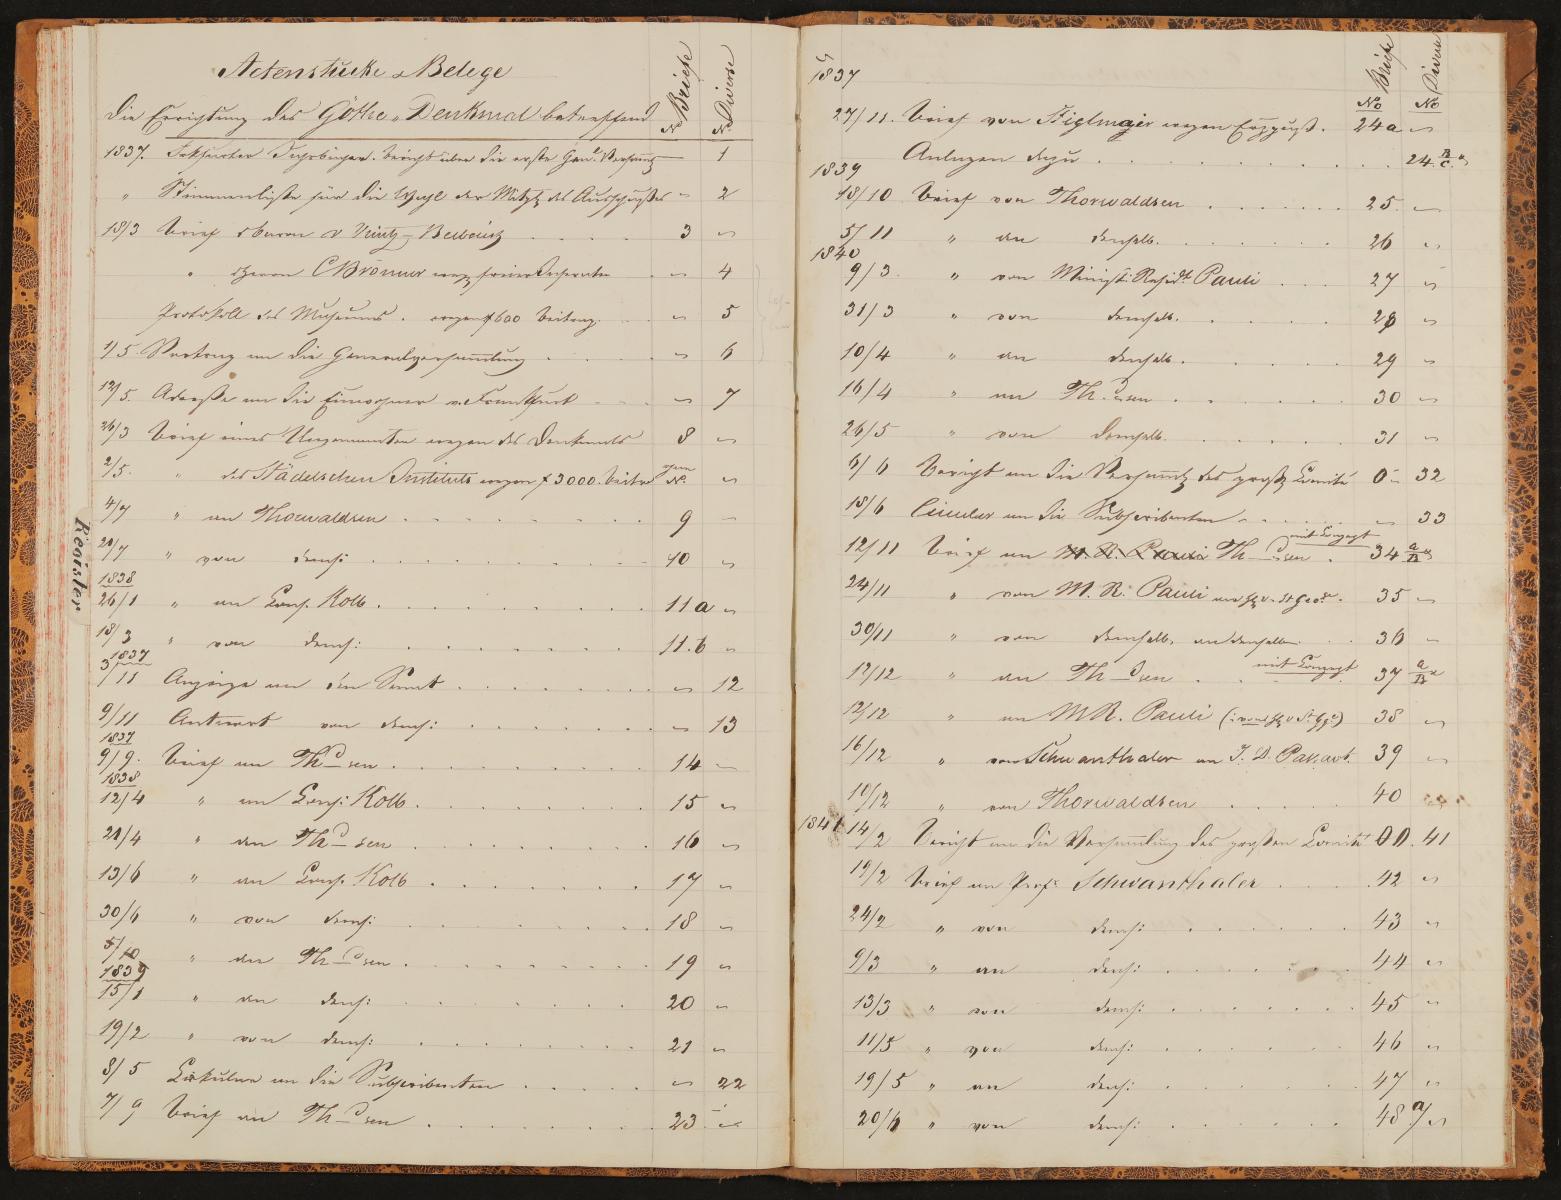 Actenstücke & Belege
die Errichtung des Göthe-Denkmal betreffend
Briefe No
Diverse No
1837. bericht über die erste Genl. Versamg 1
" Stimmenliste für die Wahl der Mitgl. des Ausschusses " 2
18/3 Brief 3 "
" C Brönner wegen seiner " 4
Protokoll des Museums. wegen f 600 Beitrag " 5
1/5. Vortrag an die Generalversammlung " 6
12/5. Adresse an die Einwohner v. Frankfurt " 7
26/3 Brief eines Ungenannten wegen des Denkmals 8 "
2/5. " des Städelschen Instituts wegen f 3000. Beitrag No. "
4/7 " an Thorwaldsen 9 "
20/7 " von dems: 10 "
1838
26/1 " an Cons. Kolb 11a "
18/3 " von dems: 11.b "
1837
3/11 Anzeige an den Senat " 12
9/11 Antwort von dems: " 13
1837
9/9. Brief an Th–sen 14 "
1838
12/4 " an Cons: Kolb 15 "
21/4 " an Th–sen 16 "
13/6 " an Cons. Kolb 17 "
30/6 " von dems: 18 "
5/10 " an Th–sen 19 "
1839
15/1 " an dens: 20 "
19/2 " von dems: 21 "
8/5 Cirkular an die Subscribenten " 22
7/9 Brief an Th–sen 23 "
Register
1837
Briefe No
Diverse No
27/11. Brief von Stiglmajer wegen Erzguß. 24a "
Anlagen dazu 24 B/C "
1839
18/10 Brief von Thorwaldsen 25 "
5/11 " an denselb. 26 "
1840
9/3. " von Minist: Resid.t Pauli 27 "
31/3 " von demselb. 28 "
10/4 " an denselb. 29 "
16/4 " an Th–sen 30 "
26/5 " von demselb. 31 "
6/6 Bericht an die Versammlg des großen Comité 0 – 32
18/6 Circular an die Subscribenten " 33
12/11 Brief an M. R. Pauli Th–sen mit Concept 34 a/B "
24/11 " von M. R. Pauli 35 "
30/11 " von demselb. an denselben 36 "
12/12 " an Th–sen mit Concept 37 a/B "
12/12 " an M R. Pauli 38 "
16/12 " von Schwanthaler an J. D. Passavt. 39 "
18/12 " von Thorwaldsen 40 "
1841 14/2 Bericht an die Versammlung des großen Comité 00. 41
19/2 Brief an Prof: Schwanthaler 42 "
24/2 " von dems: 43 "
9/3 " an dens: 44 "
13/3 " von dems: 45 "
11/5 " von dems: 46 "
19/5 " an dens: 47 "
20/6 " von dems: 48 a/ "